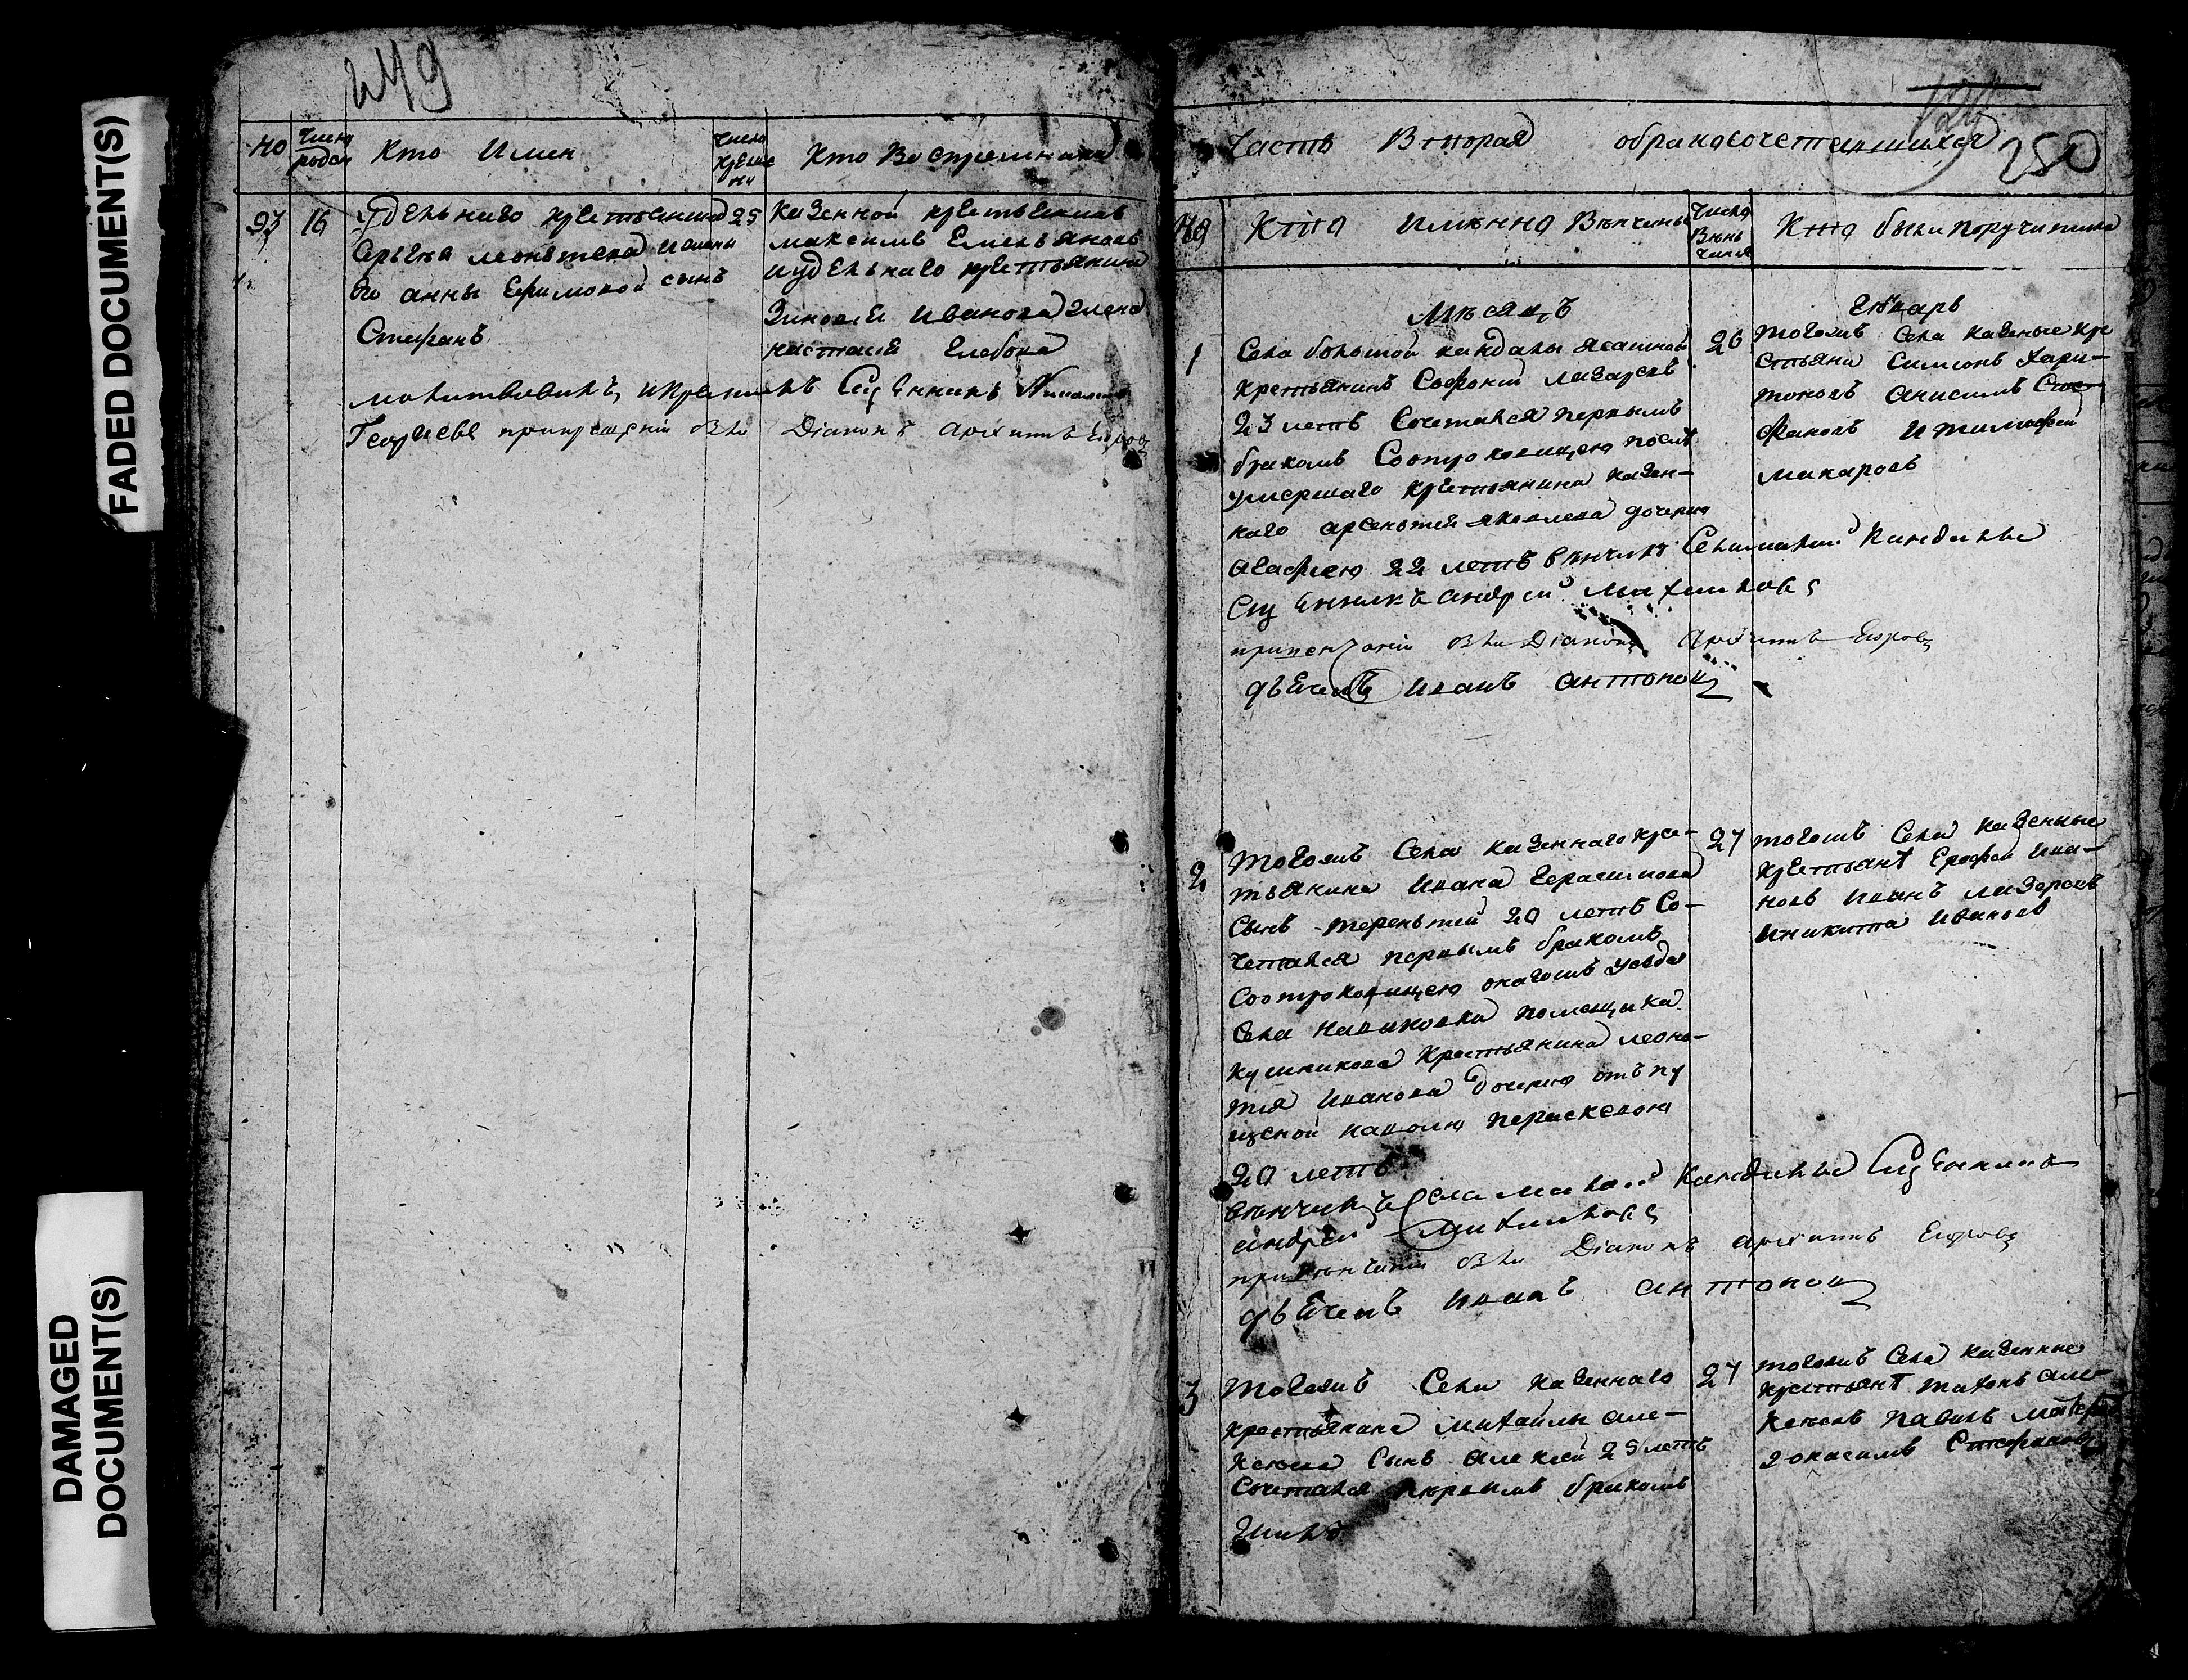 FADED DOCUMENT(S)
DAMAGED DOCUMENT(S)
249
Число родож
Кто Имен
Число
Кто Воспремники
93 16 удельнаго крестьянина 25
Сергея леонтева и жены
его анны Ефимовой сынъ
Стефанъ
казенной крестьянинъ
максимъ Емельяновъ
и удельнаго крестьянина
Зиновей Иванова жена
настасия Глебова
молитвовилъ, и крестилъ Священникъ
Георгиевъ при крещении былъ Диаконъ Архипъ Егоровъ
Часть Вторая о бракосочетавшихся 250
№ Кто имянно Венчены
Число Венчания
Кто были поручители
Месяцъ Генварь
1 Села большой кандалы ясашной 26
крестьянинъ Софроний лазаревъ
23 летъ Сочетался первымъ
бракомъ Соотроковицею после
умершаго крестьянина казен-
наго арсентей яковлева дочерью
агафиею 22 летъ венчалъ Села малой Кандалы
Священникъ андрей Михайловъ
при венчании былъ Диаконъ Архипъ Егоровъ
дьячекъ иванъ антоновъ
тогожъ Села казеные кре
стьяни Симионъ Хари-
тоновъ анисимъ Сте-
фановъ и тимофей
макаровъ
2 Тогожъ Села казеннаго кре- 27
стьянина Ивана Герасимова
Сынъ терентий 20 летъ Со-
четался первымъ бракомъ
Соотроковицею онагожъ уезда
Села помещика
крестьянина леон-
тия Иванова дочерью отъ пу
щеной на волю параскевою
20 летъ
венчалъ Села малой Кандалы Священникъ
андрей Михайловъ
при венчании былъ Диаконъ Архипъ Егоровъ
дьячекъ иванъ антоновъ
тогожъ Села казенные
крестьяне Ерофей Ива-
новъ иванъ лазаревъ
и никита ивановъ
3 Тогожъ Села казеннаго 27
крестьянина михайлы але-
ксеева Сынъ алексей 25 летъ
Сочетался первымъ бракомъ
тогожъ Села казенные
крестьяне тихонъ але-
ксеевъ павелъ
Стефановъ